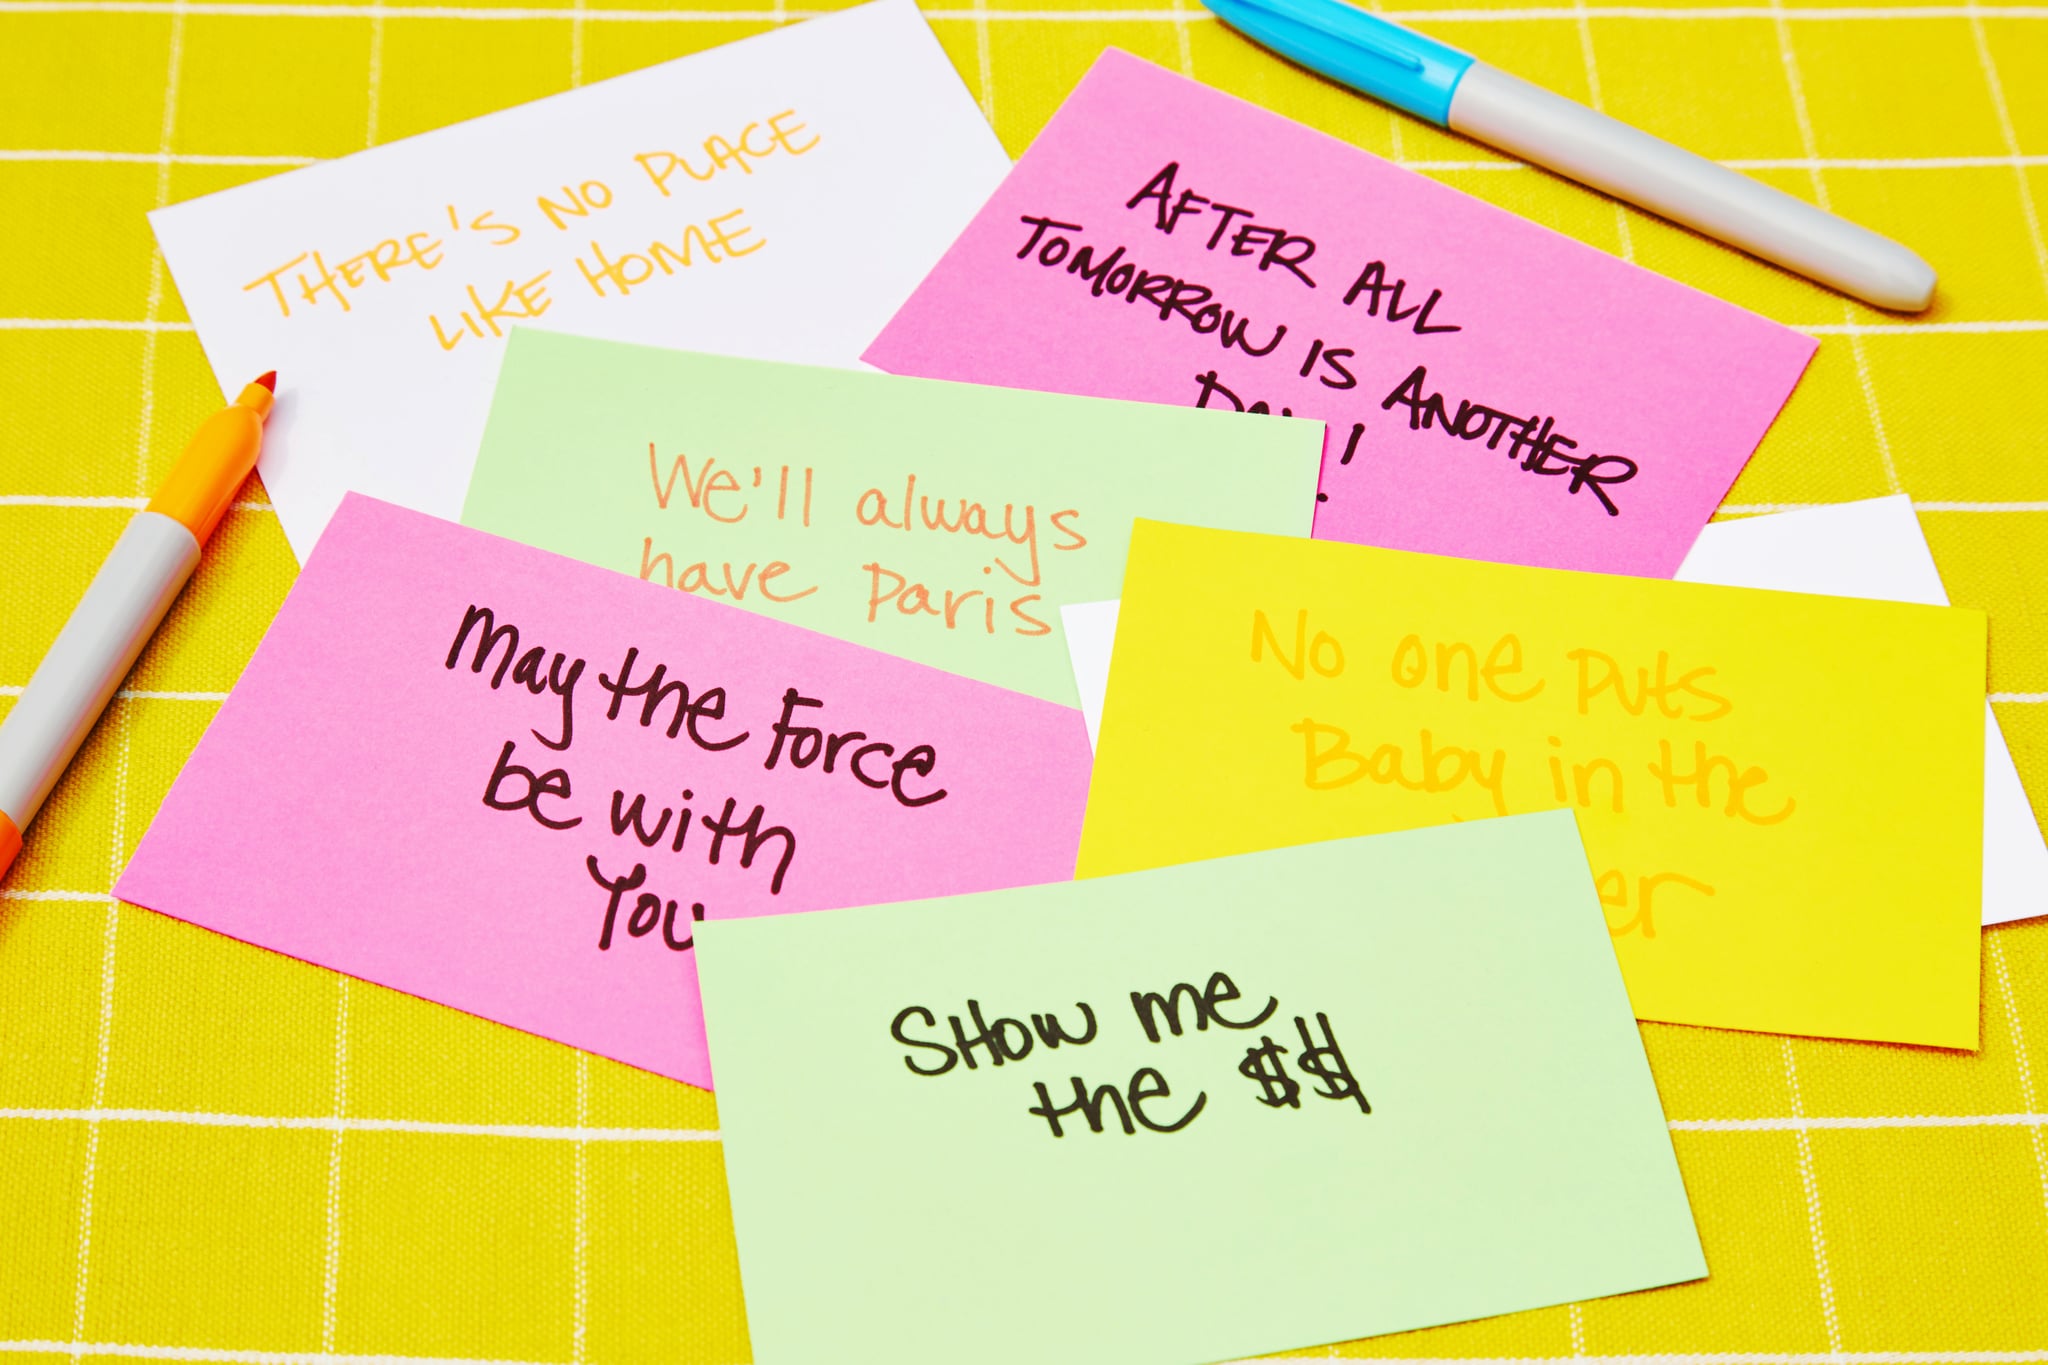 THERE'S NO PLACE
LIKE HOME
AFTER ALL
TOMORROW IS ANOTHER
!
We'll always
have Paris
May the Force
be with
You
No one puts
Baby in the
Show me
the $$